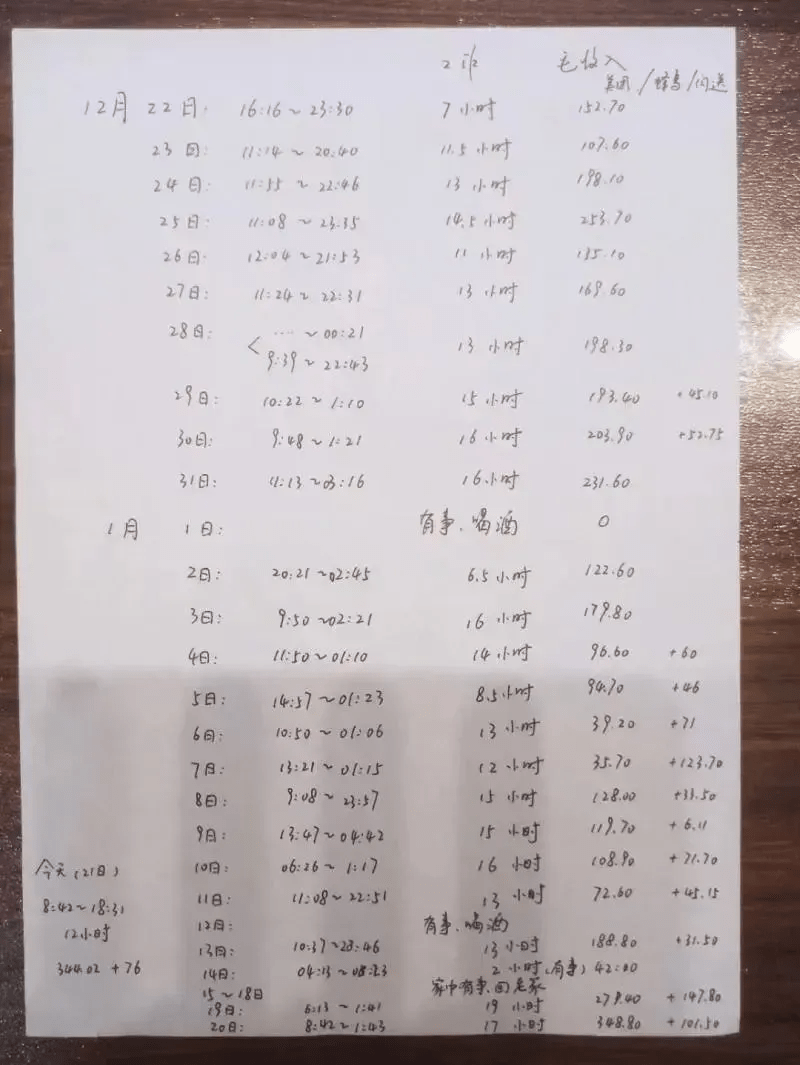 2班 毛收入
美团/蜂鸟/闪送
12月 22日: 16:16~23:30 7小时 152.70
23日: 11:14~20:40 11.5小时 107.60
24日: 11:55~22:46 13小时 198.10
25日: 11:08~23:35 14.5小时 253.70
26日: 12:04~21:53 11小时 135.10
27日: 11:24~22:31 13小时 169.60
28日: ····~00:21
9:39~22:43 13小时 198.30
29日: 10:22~1:10 15小时 193.40 +45.10
30日: 9:48~1:21 16小时 203.90 +52.75
31日: 11:13~03:16 16小时 231.60
1月 1日: 有事、喝酒 0
2日: 20:21~02:45 6.5小时 122.60
3日: 9:50~02:21 16小时 179.80
4日: 11:50~01:10 14小时 96.60 +60
5日: 14:57~01:23 8.5小时 94.70 +46
6日: 10:50~01:06 13小时 39.20 +71
7日: 13:21~01:15 12小时 35.70 +123.70
8日: 9:08~23:57 15小时 128.00 +33.50
9日: 13:47~04:42 15小时 119.70 +6.11
10日: 06:26~1:17 16小时 108.90 +71.70
11日: 11:08~22:51 13小时 72.60 +45.15
12日: 有事、喝酒
13日: 10:37~23:46 13小时 188.80 +31.50
14日: 04:13~08:23 2小时(有事) 42:00
15~18日 家中有事、回老家
19日: 6:13~1:41 19小时 279.40 +147.80
20日: 8:42~1:43 17小时 348.80 +101.50
今天(21日)
8:42~18:31
12小时
344.02+76